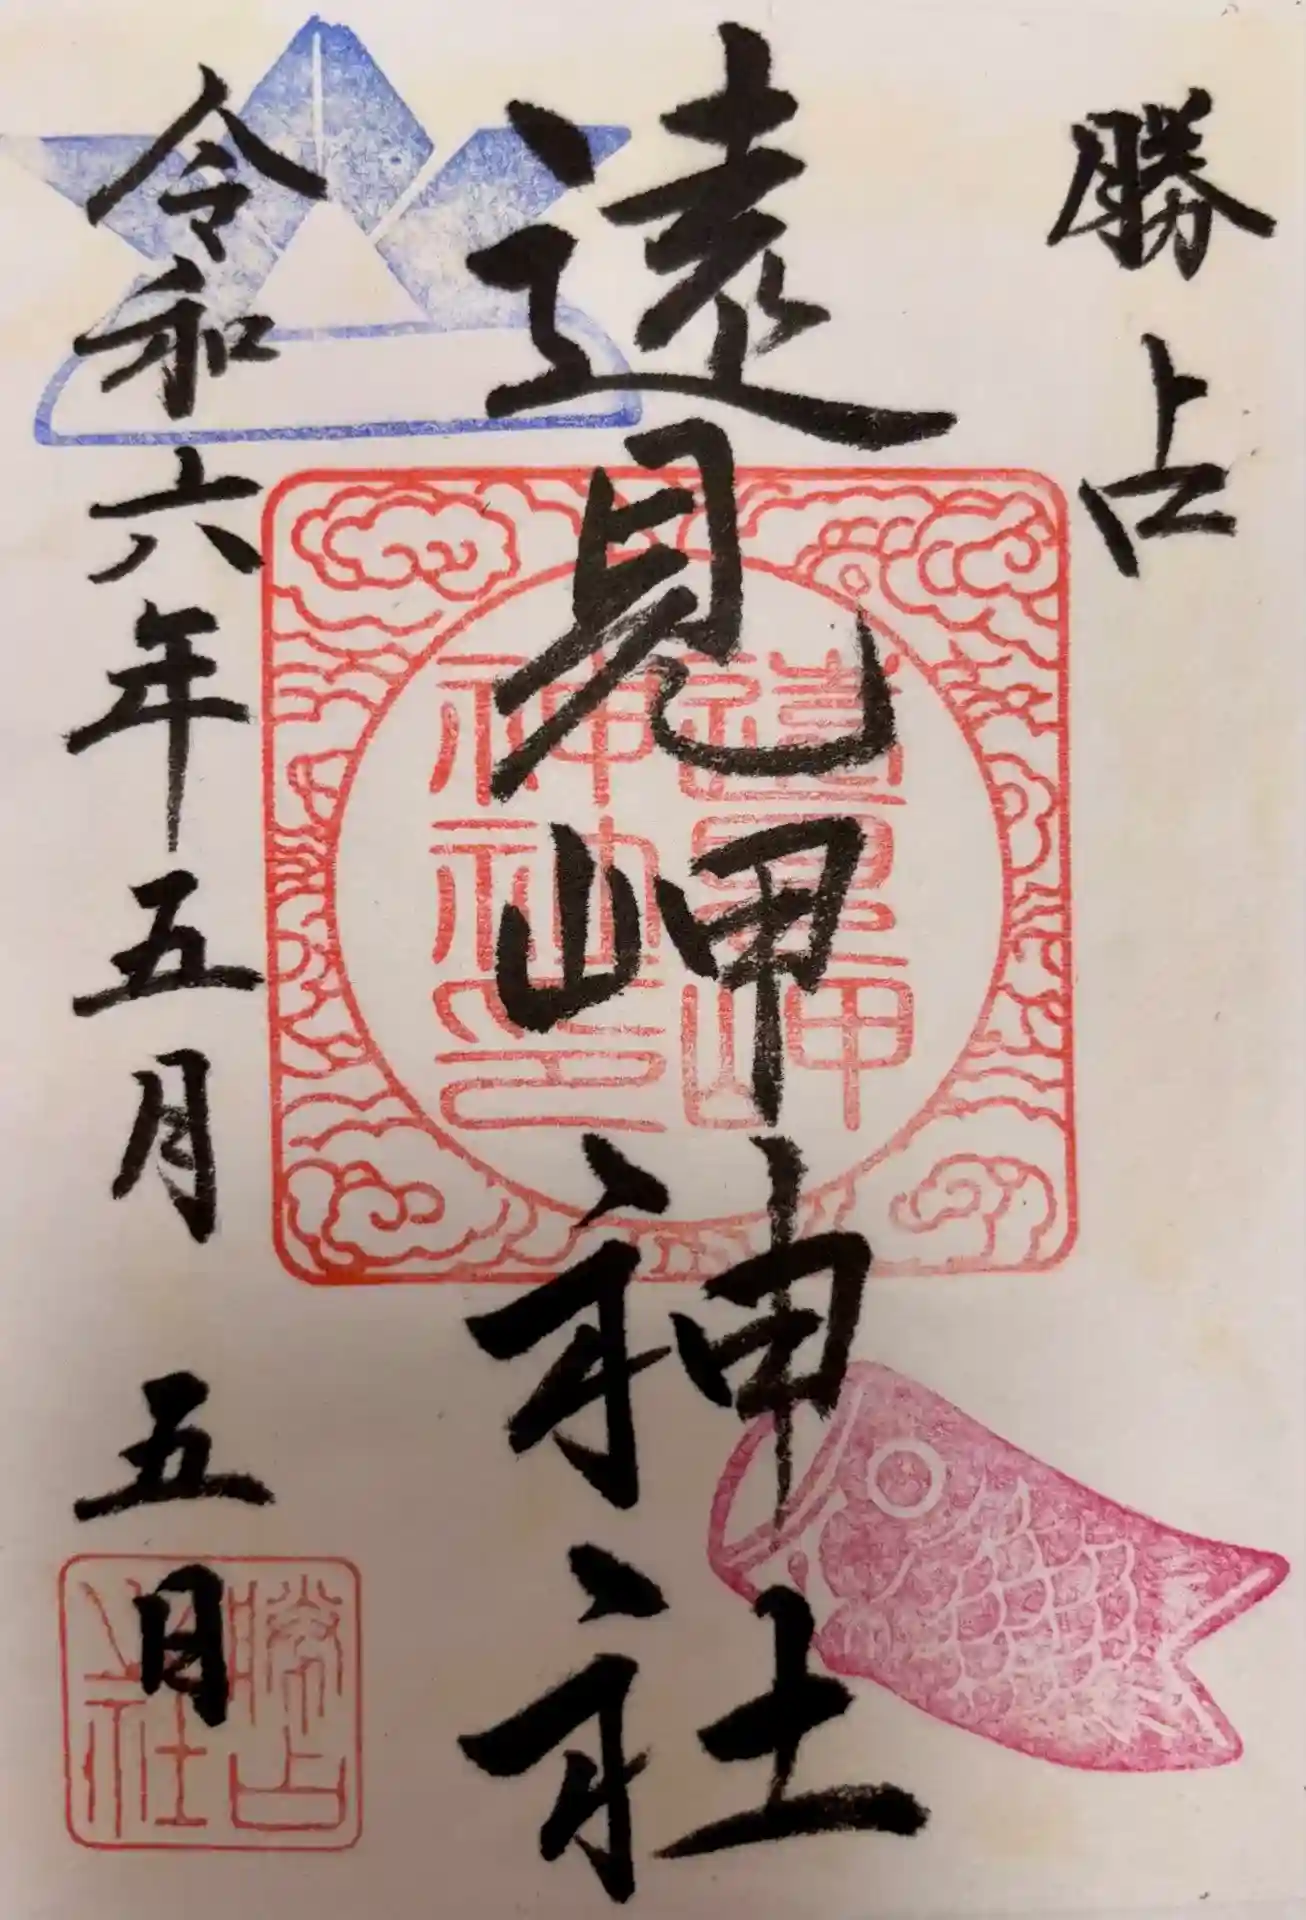 勝占
遠見岬神社
令和六年五月 五日
遠見岬
神社印
勝占
社